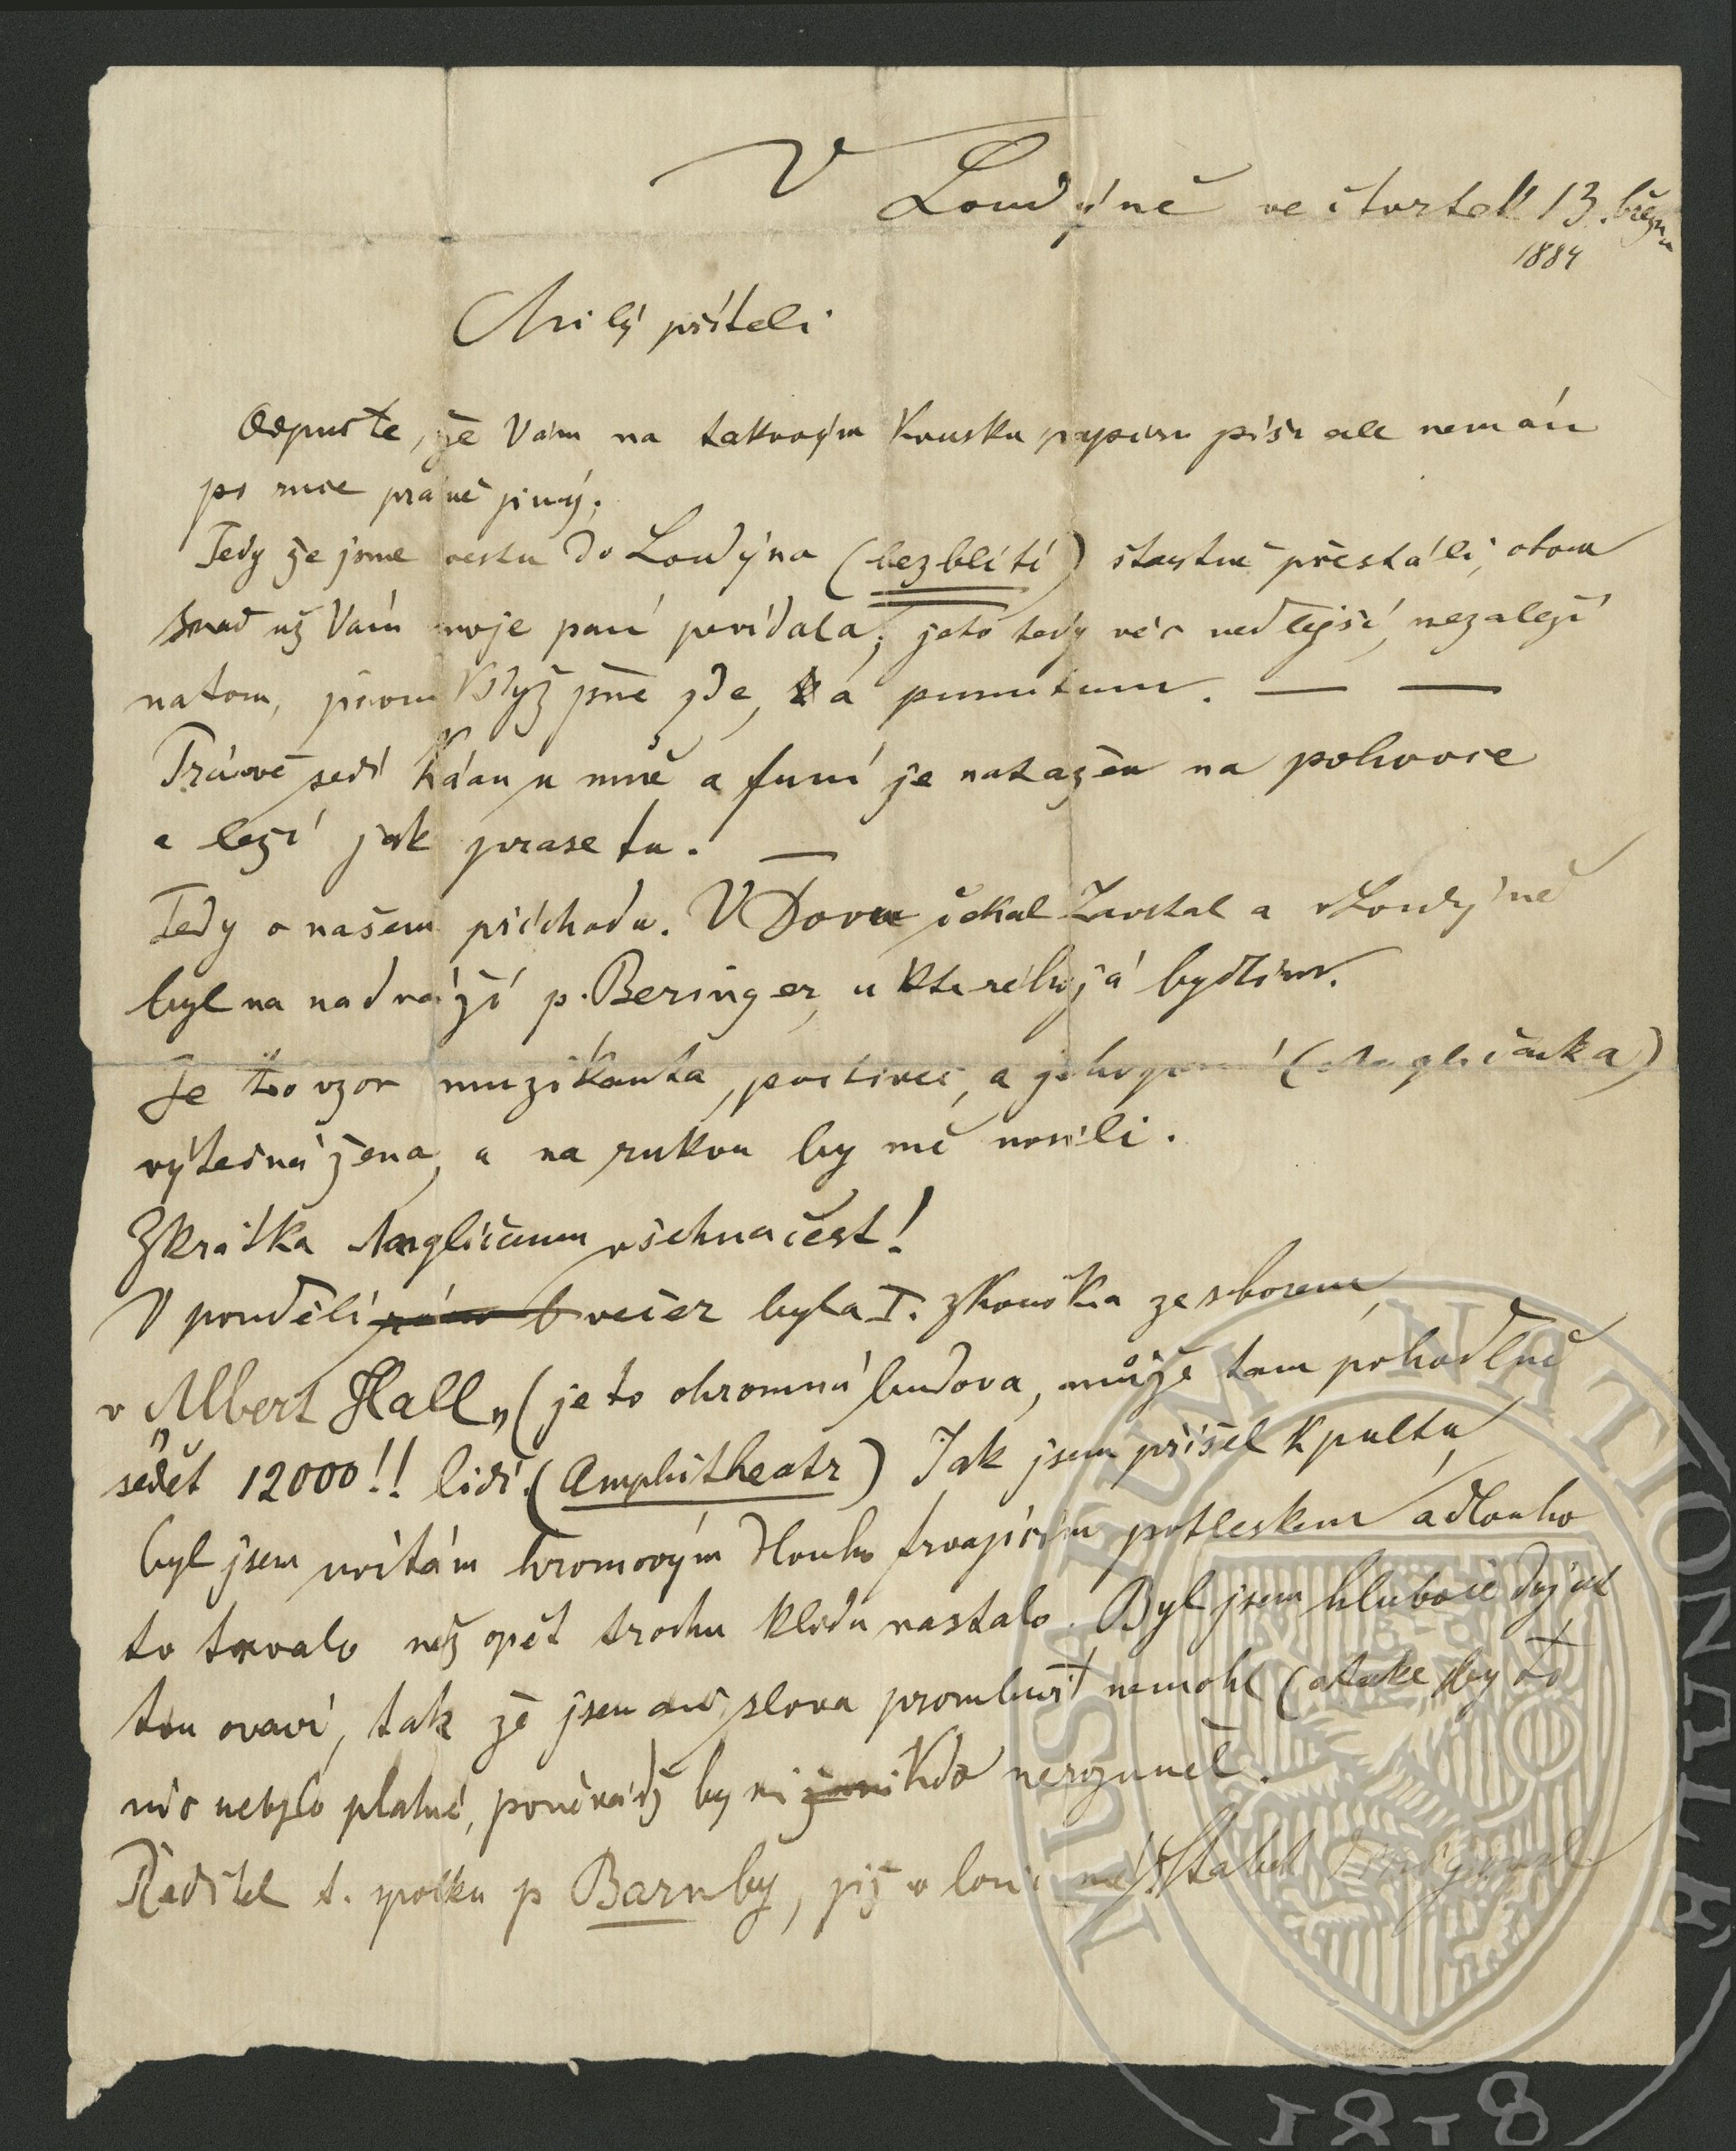 V Londýně ve čtvrtek 13. března
1884
Milý příteli
Odpusťte, že Vám na takovým kousku papíru píši ale nemám
po ruce právě jiný.
Tedy že jsme cestu do Londýna (bez blití) šťastně přestáli, otom
snad už Vám moje paní povídala; jeto tedy věc vedlejší, nezáleží
natom, jenom když jsme zde, a punktum. — —
Právě sedí Káan u mně a funí je natažen na pohovce
a leží jak prase tu. —
Tedy o našem příchodu. V Dovru čekal Zavrtal a v Londýně
byl na nadraží p. Beringer, u kterého já bydlím.
Je to vzor muzikanta, poctivec, a jeho paní (Angličanka)
výtečná žena, a na rukou by mě nosili.
Zkrátka Angličanum všchna čest!
V pondělí večer byla I. zkouška ze sborem
v „Albert Hall" (je to ohromná budova, může tam pohodlně
sedět 12000!! lidí. (Amphitheatr) Jak jsem přišel k pultu,
byl jsem uvítám hromovým dlouho trvajícím potleskem a dlouho
to trvalo než opět trochu klidu nastalo. Byl jsem hluboce dojat
tou ovací, tak že jsem ani slova promluvit nemohl (a také by to
nic nebylo platné, poněvádž by mi nikdo nerozuměl.
Ředitel t. spolku p Barnby, již v loni mé Stabat
MUSAEUM NATIONALE
1818